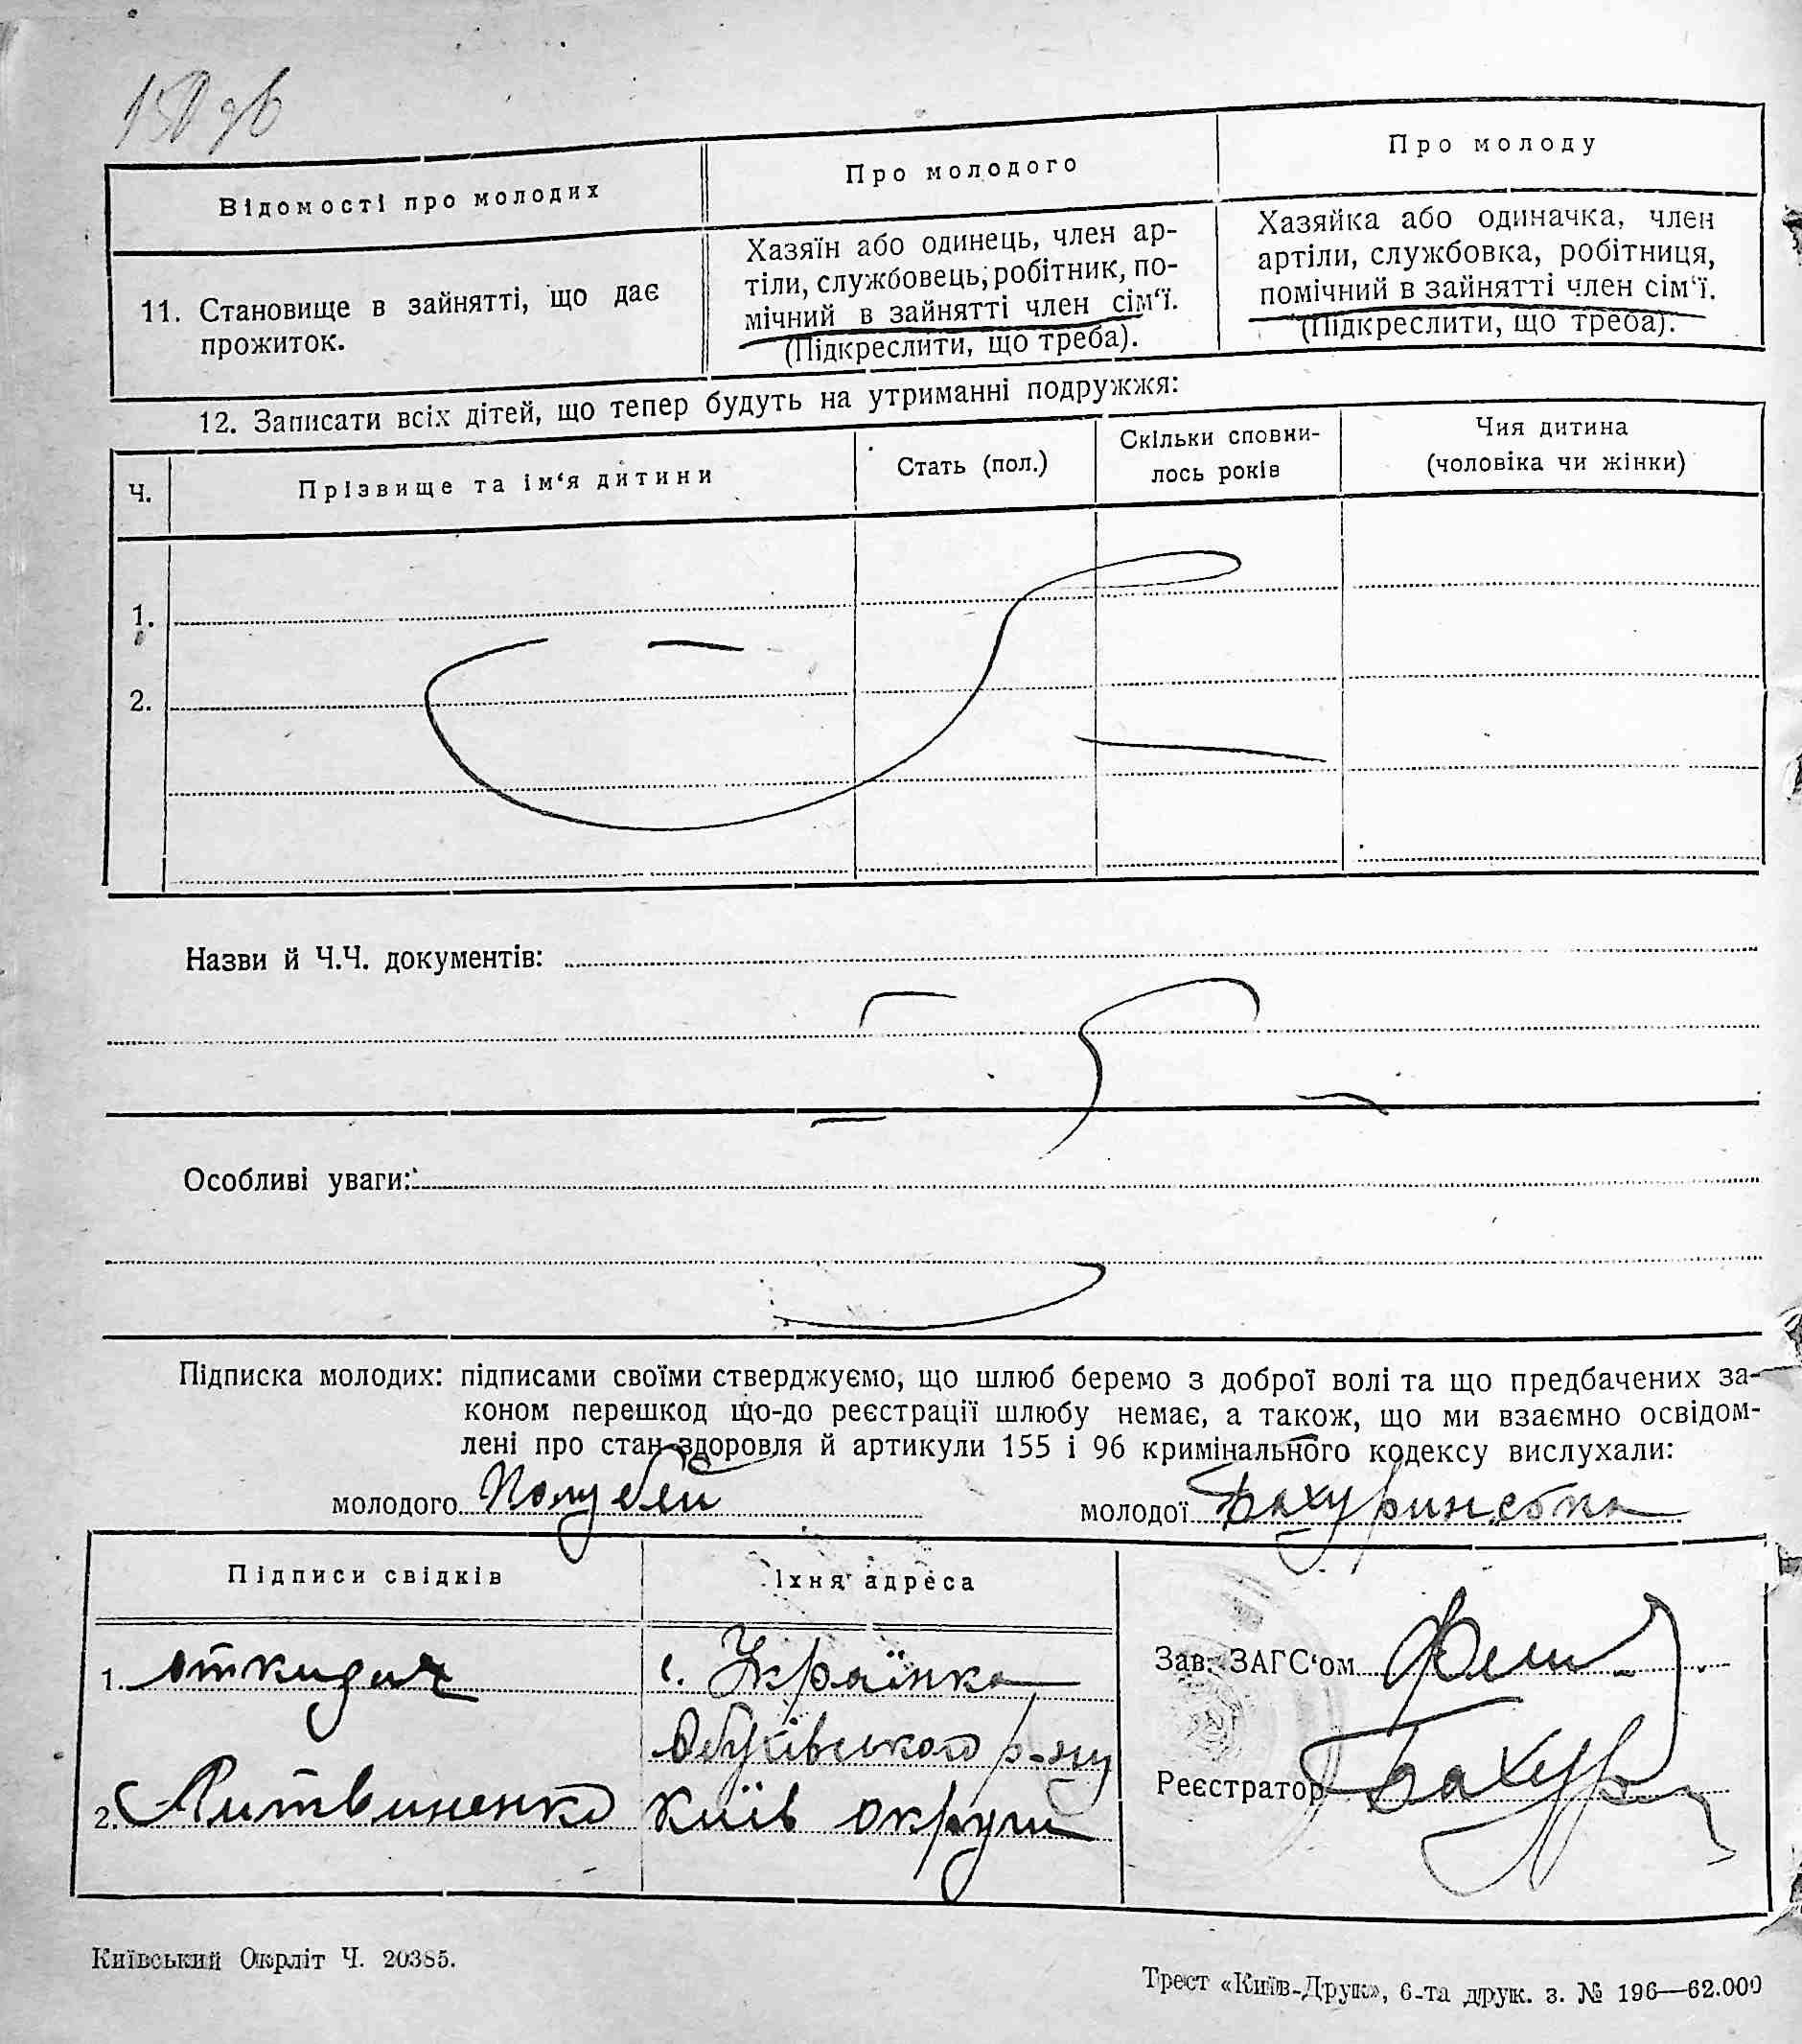 Відомості про молодих
Про молодого
Про молоду
11. Становище в зайнятті, що дає
прожиток.
Хазяїн або одинець, член ар-
тіли, службовець, робітник, по-
мічний в зайнятті член сім‘ї.
(Підкреслити, що треба).
Хазяйка або одиначка, член
артіли, службовка, робітниця,
помічний в зайнятті член сім‘ї.
(Підкреслити, що треба).
12. Записати всіх дітей, що тепер будуть на утриманні подружжя:
Ч.
Прізвище та ім‘я дитини
Стать (пол.)
Скільки сповни-
лось років
Чия дитина
(чоловіка чи жінки)
1.
2.
Назви й Ч.Ч. документів:
Особливі уваги:
Підписка молодих: підписами своїми стверджуємо, що шлюб беремо з доброї волі та що предбачених за-
коном перешкод що-до реєстрації шлюбу немає, а також, що ми взаємно освідом-
лені про стан здоровля й артикули 155 і 96 кримінального кодексу вислухали:
молодого
молодої Бахуринська
Підписи свідків
Їхня адреса
1. Откидач
с. Українка
Обухівського р-ну
2. Литвиненко
Київ округи
Зав. ЗАГС‘ом
Реєстратор Бахур
Київський Окрліт Ч. 20385.
Трест «Київ-Друк», 6-та друк. з. № 196—62.000